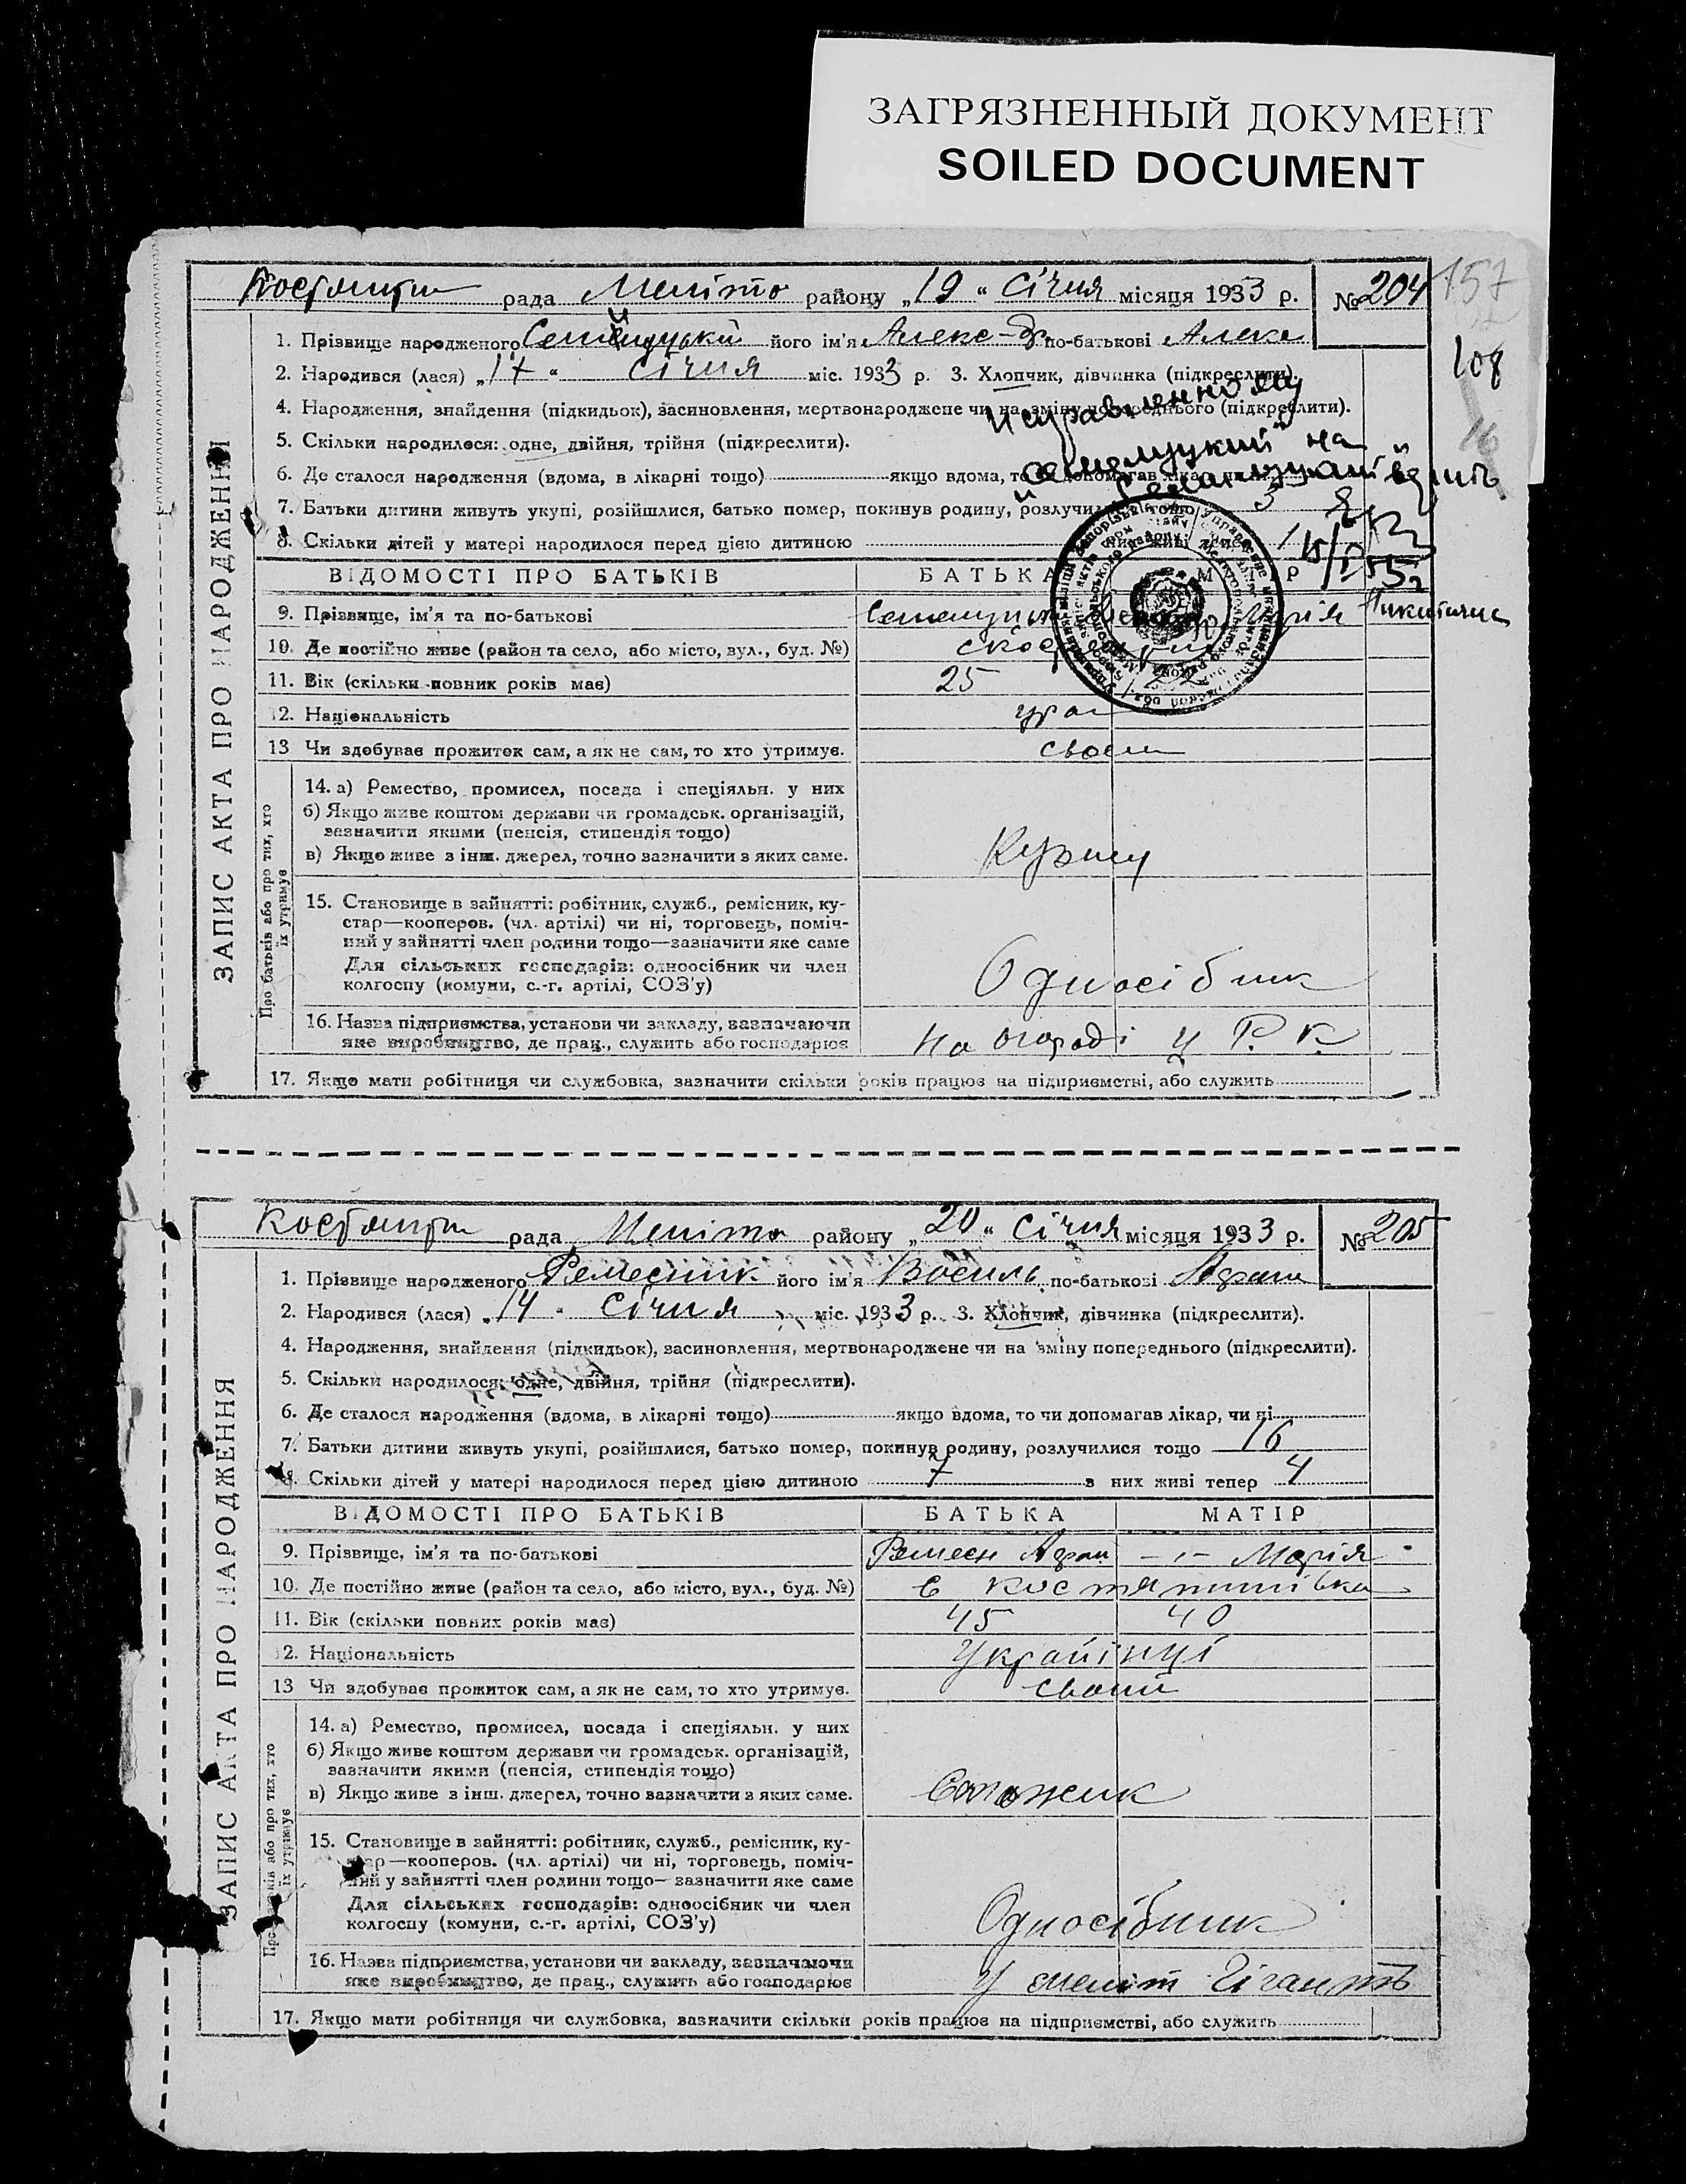 ЗАГРЯЗНЕННЫЙ ДОКУМЕНТ
SOILED DOCUMENT
рада Меліто району „19“ Січня місяця 1933 р. № 204
157
108
16
ЗАПИС АКТА ПРО НАРОДЖЕННЯ
1. Прізвище народженого його ім'я Алекс-др по-батькові Алекс
2. Народився (лася) „17“ Січня міс. 1933 р. 3. Хлопчик, дівчинка (підкреслити).
4. Народження, знайдення (підкидьок), засиновлення, мертвонароджене чи на зміну попереднього (підкреслити).
5. Скільки народилося: одне, двійня, трійня (підкреслити).
6. Де сталося народження (вдома, в лікарні тощо) якщо вдома, то
Исправленному
на
7. Батьки дитини живуть укупі, розійшлися, батько помер, покинув родину, розлучилися тощо 3
8. Скільки дітей у матері народилося перед цією дитиною
ВІДОМОСТІ ПРО БАТЬКІВ БАТЬКА
9. Прізвище, ім'я та по-батькові Марія
10. Де постійно живе (район та село, або місто, вул., буд. №)
11. Вік (скільки повних років має) 25
12. Національність
13 Чи здобував прожиток сам, а як не сам, то хто утримує. своєм
Про батьків або про тих, хто їх утримує
14. а) Ремество, промисел, посада і спеціяльн. у них
б) Якщо живе коштом держави чи громадськ. організацій,
зазначити якими (пенсія, стипендія тощо)
в) Якщо живе з інш. джерел, точно зазначити з яких саме.
15. Становище в зайнятті: робітник, служб., ремісник, ку-
стар—кооперов. (чл. артілі) чи ні, торговець, поміч-
ний у зайнятті член родини тощо—зазначити яке саме
Для сільських господарів: одноосібник чи член
колгоспу (комуни, с.-г. артілі, СОЗ'у)
Односібник
16. Назва підприємства, установи чи закладу, зазначаючи
яке виробництво, де прац., служить або господарює
на огороді у Р. К.
17. Якщо мати робітниця чи службовка, зазначити скільки років працює на підприємстві, або служить
рада Меліто району „20“ Січня місяця 1933 р. № 205
ЗАПИС АКТА ПРО НАРОДЖЕННЯ
1. Прізвище народженого Ремесник його ім'я Василь по-батькові
2. Народився (лася) „14“ Січня міс. 1933 р. 3. Хлопчик, дівчинка (підкреслити).
4. Народження, знайдення (підкидьок), засиновлення, мертвонароджене чи на зміну попереднього (підкреслити).
5. Скільки народилося: одне, двійня, трійня (підкреслити).
6. Де сталося народження (вдома, в лікарні тощо) якщо вдома, то чи допомагав лікар, чи ні
7. Батьки дитини живуть укупі, розійшлися, батько помер, покинув родину, розлучилися тощо 16
8. Скільки дітей у матері народилося перед цією дитиною 7 з них живі тепер 4
ВІДОМОСТІ ПРО БАТЬКІВ БАТЬКА МАТІР
9. Прізвище, ім'я та по-батькові Ремесн -"- Марія
10. Де постійно живе (район та село, або місто, вул., буд. №)
11. Вік (скільки повних років має) 45 40
12. Національність Українці
13 Чи здобуває прожиток сам, а як не сам, то хто утримує.
14. а) Ремество, промисел, посада і спеціяльн. у них
б) Якщо живе коштом держави чи громадськ. організацій,
зазначити якими (пенсія, стипендія тощо)
в) Якщо живе з інш. джерел, точно зазначити з яких саме.
15. Становище в зайнятті: робітник, служб., ремісник, ку-
стар—кооперов. (чл. артілі) чи ні, торговець, поміч-
ний у зайнятті член родини тощо—зазначити яке саме
Для сільських господарів: одноосібник чи член
колгоспу (комуни, с.-г. артілі, СОЗ'у)
Односібник
16. Назва підприємства, установи чи закладу, зазначаючи
яке виробництво, де прац., служить або господарює
17. Якщо мати робітниця чи службовка, зазначити скільки років працює на підприємстві, або служить